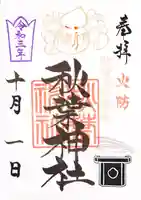 奉拝
火防
秋葉神社
令和三年
十月一日